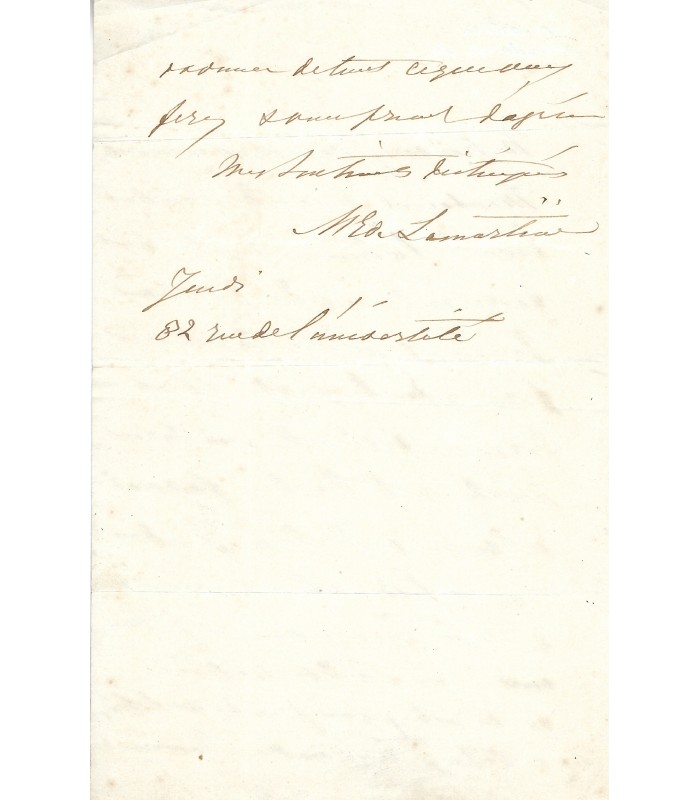 donner de tout ce que vous
ferez & vous prient d'agréer
mes sentiments distingués
M E de Lamartine
Jeudi
82 rue de l'université